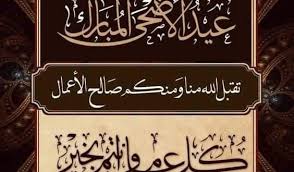 عيد الأضحى المبارك
تقبل الله منا ومنكم صالح الأعمال
كل عام وانتم بخير